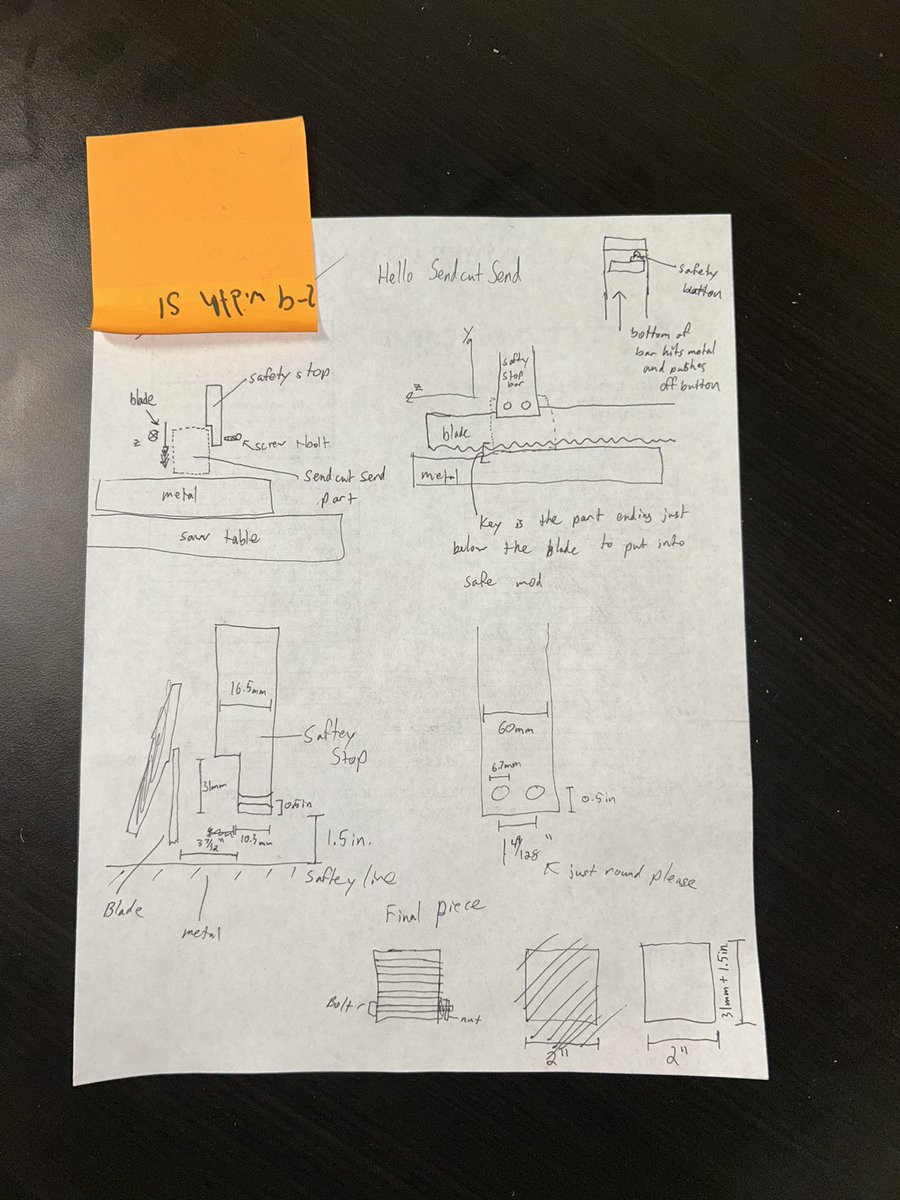 Hello Sendcut Send
safety
button
bottom of
bar hits metal
and pushes
off button
safety stop
blade
z
screw + bolt
Sendcut Send
part
metal
saw table
Y
z
safty
stop
bar
blade
metal
Key is the part ending just
below the blade to put into
safe mod
16.5mm
Saftey
Stop
31mm
0.5in
10.3mm
1.5in.
Saftey line
Blade
metal
60mm
6.7mm
0.5in
just round please
Final piece
Bolt
nut
2"
2"
31mm + 1.5in